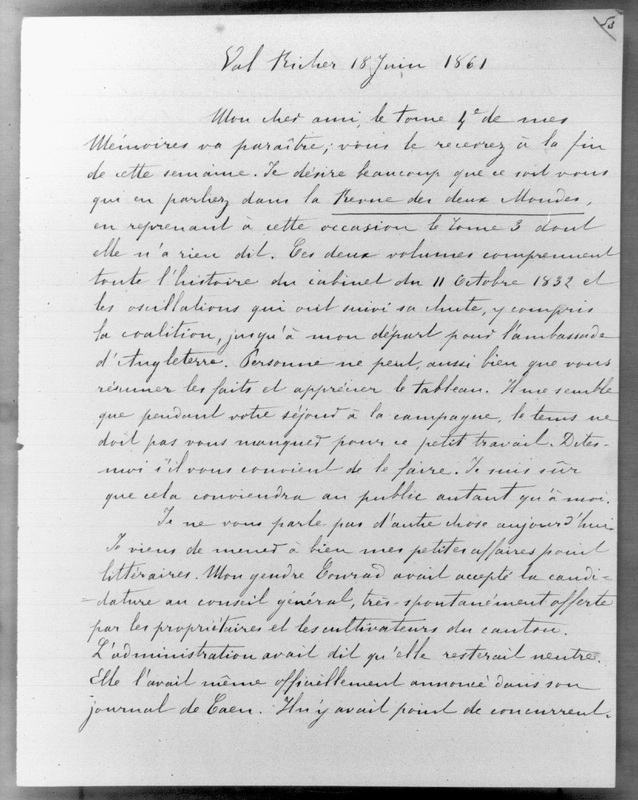 53
Val Richer 18 Juin 1861
Mon cher ami, le tome 4e de mes
Mémoires va paraître; vous le recevrez à la fin
de cette semaine. Je désire beaucoup que ce soit vous
qui en parliez dans la Revue des deux Mondes,
en reprenant à cette occasion le tome 3 dont
elle n'a rien dit. Ces deux volumes comprennent
toute l'histoire du cabinet du 11 Octobre 1832 et
les oscillations qui ont suivi sa chute, y compris
la coalition, jusqu'à mon départ pour l'ambassade
d'Angleterre. Personne ne peut, aussi bien que vous
résumer les faits et apprécier le tableau. Il me semble
que pendant votre séjour à la campagne, le tems ne
doit pas vous manquer pour ce petit travail. Dites-
moi s'il vous convient de le faire. Je suis sûr
que cela conviendra au public autant qu'à moi.
Je ne vous parle pas d'autre chose aujourd'hui.
Je viens de mener à bien mes petites affaires point
littéraires. Mon gendre Conrad avait accepté la candi-
-dature au conseil général, très-spontanément offerte
par les propriétaires et les cultivateurs du canton.
L'administration avait dit qu'elle resterait neutre.
Elle l'avait même officiellement annoncé dans son
journal de Caen. Il n'y avait point de concurrent.